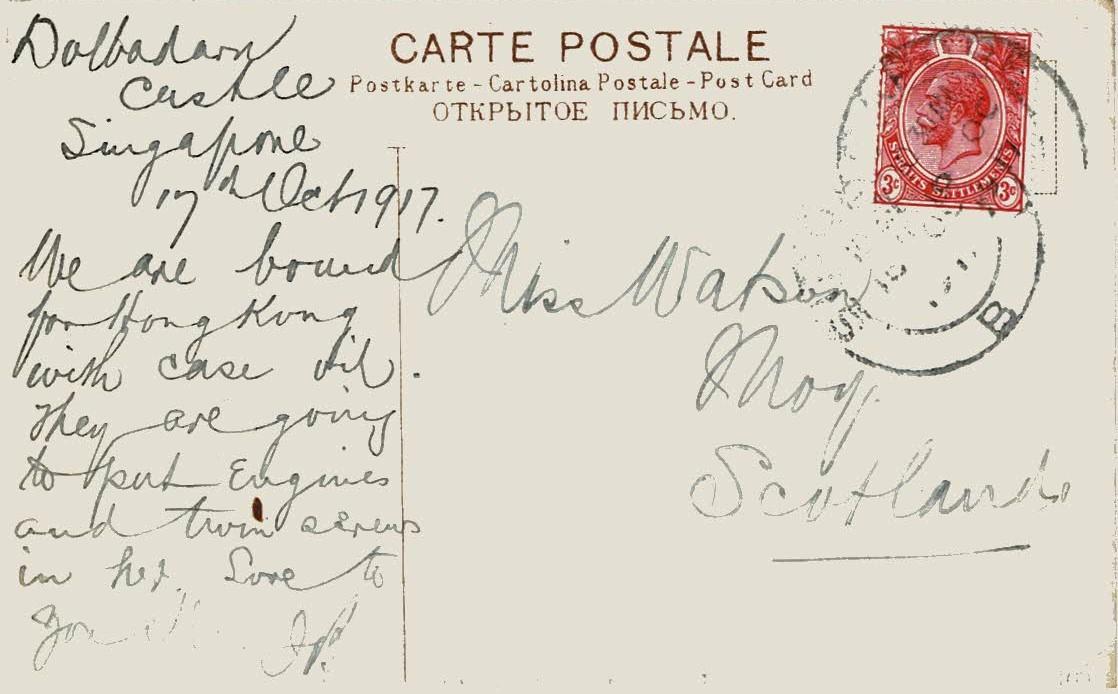 CARTE POSTALE
Postkarte - Cartolina Postale - Post Card
ОТКРЫТОЕ ПИСЬМО.
Dolbadarn
Castle
Singapore
17th Oct 1917.
We are bound
for Hong Kong
with case oil.
They are going
to put Engines
and twin screws
in her. Love to
you
Miss Watson
Moy.
Scotland
STRAITS SETTLEMENTS
3c 3c
B